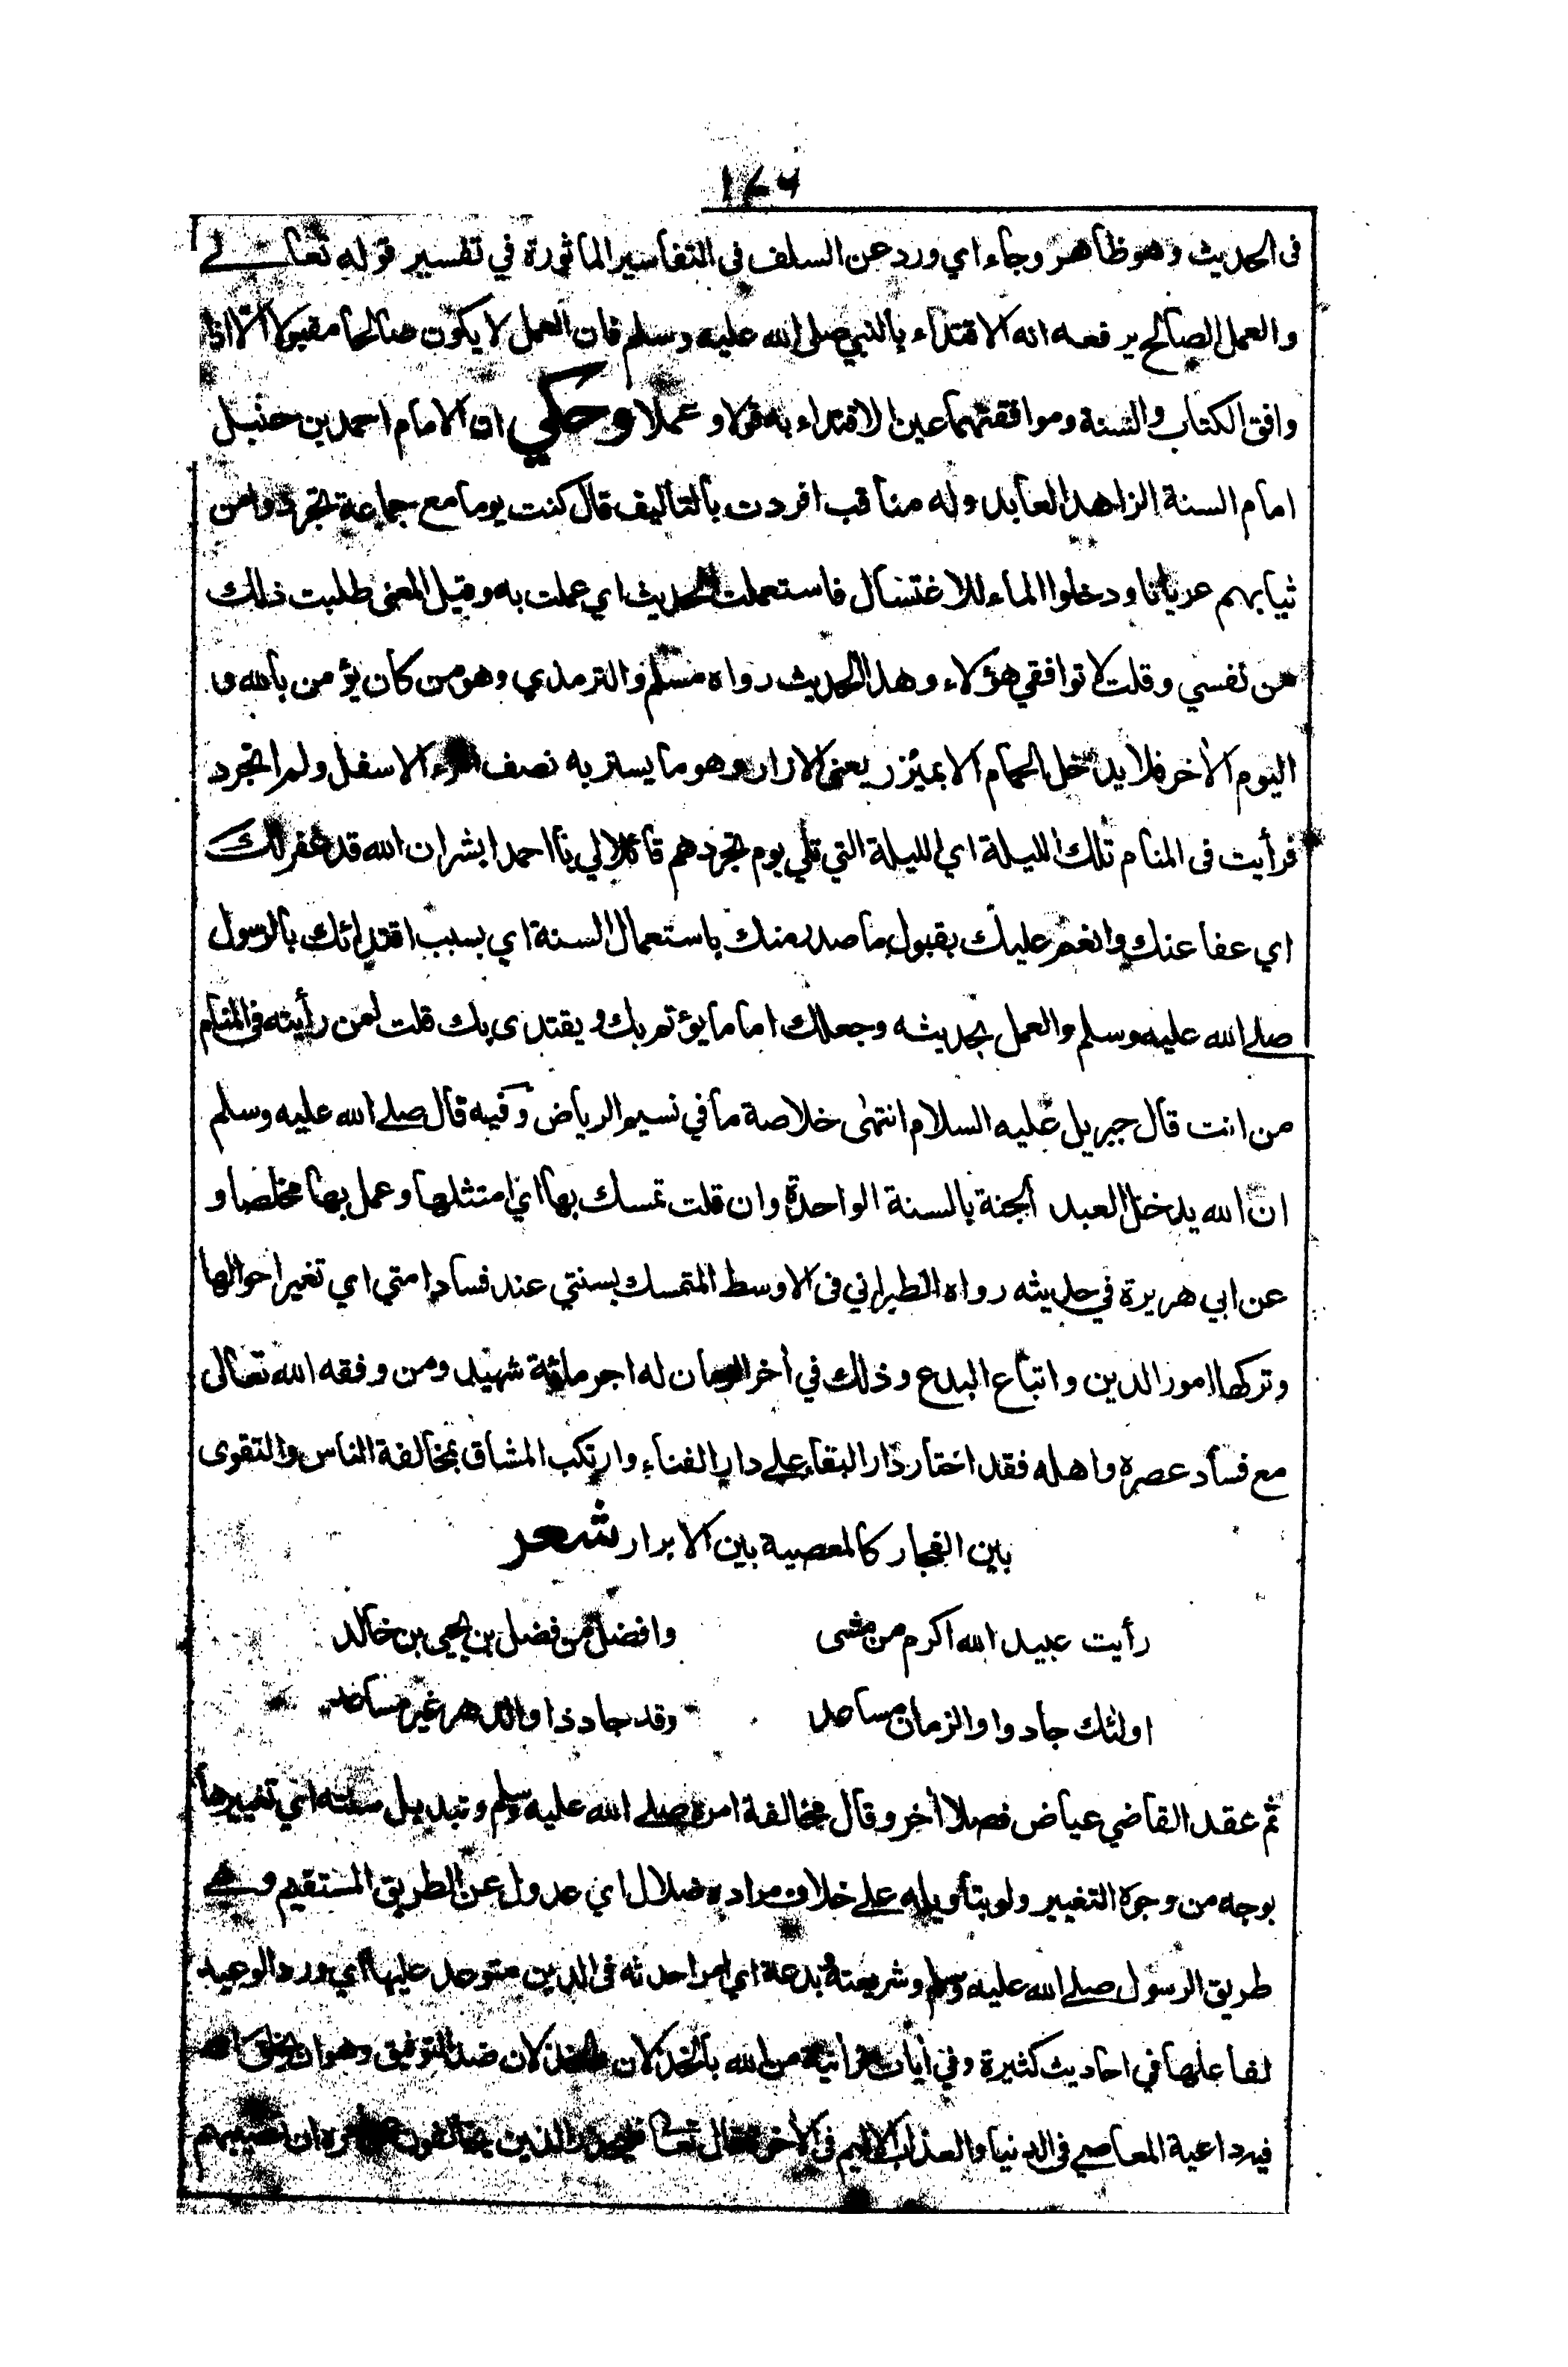 ١٤٦
فى الحديث وهو ظاهر وجاء اي ورد عن السلف فى التفاسير الماثورة في تفسير قوله تعالے
والعمل الصالح يرفعه انه الاقتداء بالنبي صلى الله عليه وسلم فان العمل لا يكون صالحا مقبولا الا اذا
وافق الكتاب والسنة وموافقتهما عين الاقتداء به قولا و عملا وحكي ان الامام احمد بن حنبل
امام السنة الزاهد العابد وله مناقب افردت بالتاليف قال كنت يوما مع جماعة تجردوا من
ثيابهم عريانا ودخلوا الماء للاغتسال فاستعملت الحديث اي عملت به وقيل المعنى طلبت ذلك
من نفسي وقلت لا توافقي هؤلاء وهذا الحديث رواه مسلم والترمذي وهو من كان يؤمن بالله و
اليوم الأخر فلا يدخل الحمام الا بمئزر يعنى الازار وهو ما يستر به نصف المرء الاسفل ولم اتجرد
فرأيت فى المنام تلك الليلة اي الليلة التي تلي يوم تجردهم قائلا لي يا احمد ابشر ان الله قد غفر لك
اي عفا عنك وانعم عليك بقبول ما صدر منك باستعمال السنة اي بسبب اقتدائك بالرسول
صلے الله عليه وسلم والعمل بحديثه وجعلك اماما يؤتم بك و يقتدى بك قلت لمن رأيته فى المنام
من انت قال جبريل عليه السلام انتهٰى خلاصة ما في نسيم الرياض وفيه قال صلے الله عليه وسلم
ان الله يدخل العبد الجنة بالسنة الواحدة وان قلت تمسك بها اي امتثلها وعمل بها مخلصا و
عن ابي هريرة في حديثه رواه الطبراني فى الاوسط المتمسك بسنتي عند فساد امتي اي تغير احوالها
وتركها امور الدين واتباع البدع وذلك في أخر الزمان له اجر مائة شهيد ومن وفقه الله تعالى
مع فساد عصره واهله فقد اختار دار البقاء علے دار الفناء وارتكب المشاق بمخالفة الناس والتقوى
بين الفجار كالمعصية بين الابرار شعر
رأيت عبيد الله اكرم من مشى وافضل من فضل بن يحيى بن خالد
اولئك جادوا والزمان مساعد وقد جاد ذا والدهر غير مساعد
ثم عقد القاضي عياض فصلا أخر وقال مخالفة امره صلے الله عليه وسلم وتبديل سنته اي تغييرها
بوجه من وجوه التغيير ولو بتأويله علے خلاف مراده ضلال اي عدول عن الطريق المستقيم وهے
طريق الرسول صلے الله عليه وسلم وشريعته وبدعة اي امر احدثه فى الدين متوعد عليها اي ورد الوعيد
لفاعلها في احاديث كثيرة وفي أيات قرأنية من الله بالخذلان الخذلان ضد التوفيق وهو ان يخلق الله
فيه داعية المعاصے فى الدنيا والعذاب الاليم فى الأخرة فقال تعالى فليحذر الذين يخالفون عن امره ان تصيبهم